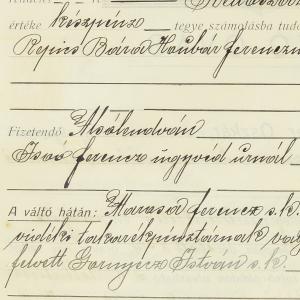 értéke készpénz tegye számolásba
Repics Bára Haubár ferencz
Fizetendő Alsólendván
Isoó ferencz ügyvéd urnál
A váltó hátán: Maraso ferencz s.k.
vidéki takarékpénztárnak
felvett István s.k.